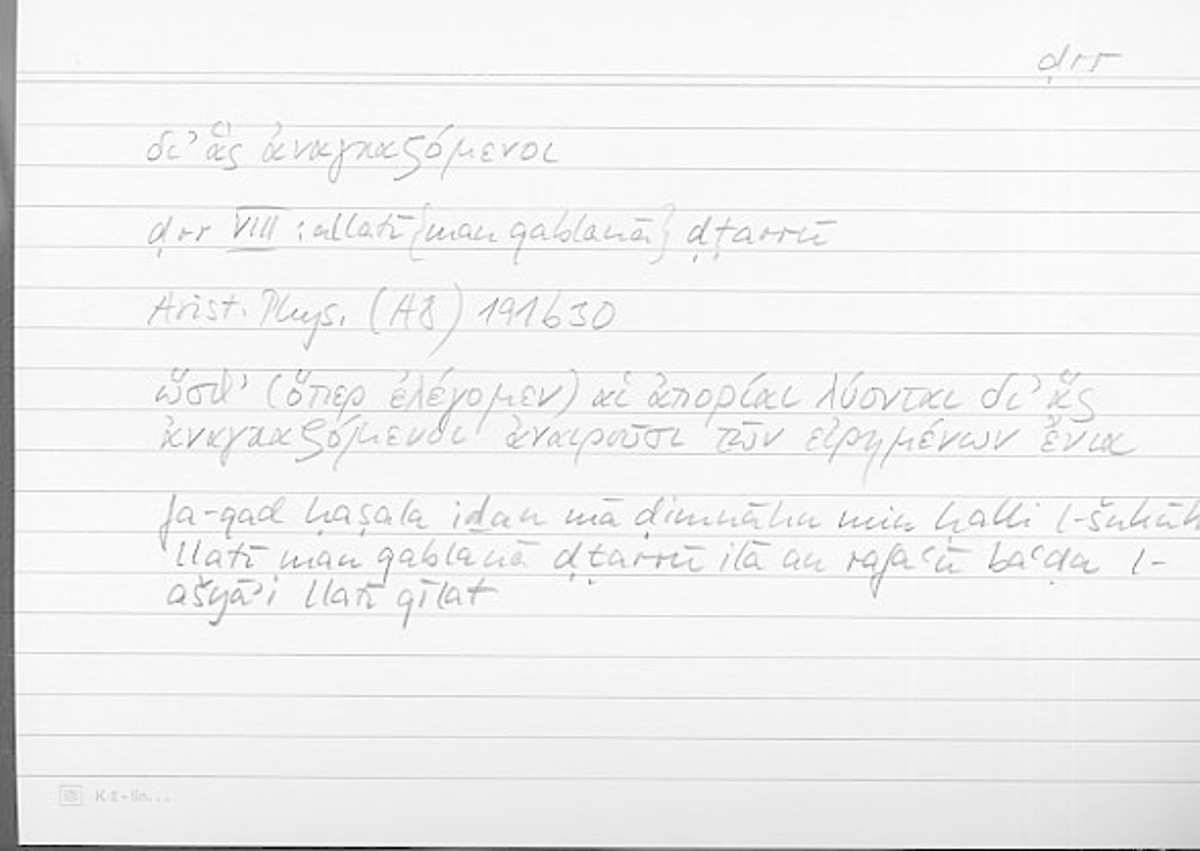 ḍrr
δι’ ἃς ἀναγκαζόμενοι
ḍrr VIII : allatī {man qablanā} ḍṭarrū
Arist. Phys. (A8) 191b30
ὥσθ’ (ὅπερ ἐλέγομεν) αἱ ἀπορίαι λύονται δι’ ἃς
ἀναγκαζόμενοι ἀναιροῦσι τῶν εἰρημένων ἔνια
fa-qad ḥaṣala iḏan mā ḍimnāhu min ḥalli l-šukūk
llatī man qablanā ḍṭarrū ilā an rafaʿū baʿḍa l-
ašyāʾi llatī qīlat